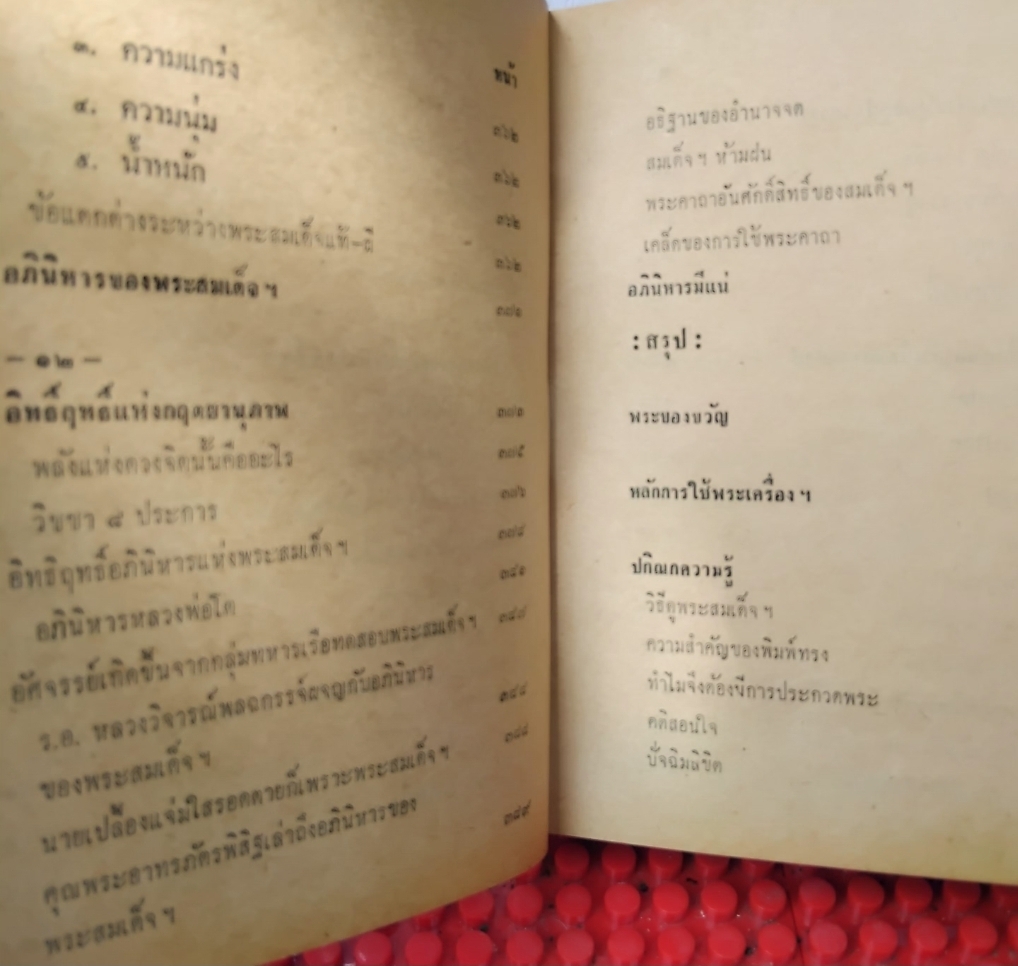 หน้า
๓. ความแกร่ง ๓๖๒
๔. ความนุ่ม ๓๖๒
๕. น้ำหนัก ๓๖๒
ข้อแตกต่างระหว่างพระสมเด็จแท้-ถี ๓๖๒
อภินิหารของพระสมเด็จฯ
— ๑๒ —
อิทธิ์ฤทธิ์แห่งกฤตยานุภาพ
พลังแห่งดวงจิตนั้นคืออะไร ๓๗๕
วิชชา ๘ ประการ ๓๗๖
อิทธิฤทธิ์อภินิหารแห่งพระสมเด็จฯ
อภินิหารหลวงพ่อโต
อัศจรรย์เกิดขึ้นจากกลุ่มทหารเรือทดสอบพระสมเด็จฯ
ร.อ. หลวงวิจารณ์พลฉกรรจ์ผจญกับอภินิหาร
ของพระสมเด็จฯ
นายเปล้องแจ่มใสรอดตายก็เพราะพระสมเด็จฯ
คุณพระอาทรภัตรพิสิฐเล่าถึงอภินิหารของ
พระสมเด็จฯ ๓๘๙
อธิฐานของอำนาจจิต
สมเด็จฯ ห้ามฝน
พระคาถาอันศักดิ์สิทธิ์ของสมเด็จฯ
เคล็ดของการใช้พระคาถา
อภินิหารมีแน่
: สรุป :
พระของขวัญ
หลักการใช้พระเครื่องฯ
ปกิณกความรู้
วิธีดูพระสมเด็จฯ
ความสำคัญของพิมพ์ทรง
ทำไมจึงต้องมีการประกวดพระ
คติสอนใจ
ปัจฉิมลิขิต